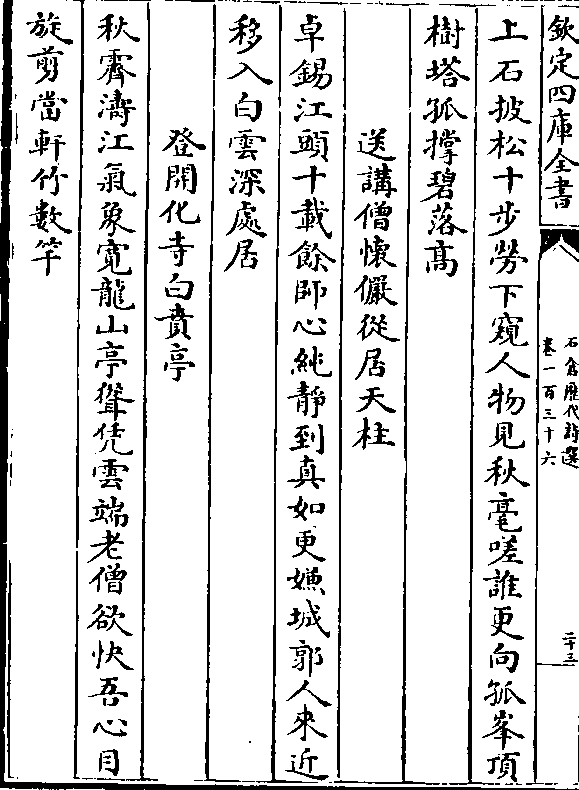 欽定四庫全書
石倉歷代詩選
卷一百三十六
二十三
上石披松十步勞下窺人物見秋毫嗟誰更向孤峯頂
樹塔孤撑碧落高
送講僧懷儼從居天柱
卓錫江頭十載餘師心純靜到真如更嫌城郭人來近
移入白雲深處居
登開化寺白賁亭
秋霽濤江氣象寛龍山亭聳凭雲端老僧欲快吾心目
旋剪當軒竹數竿